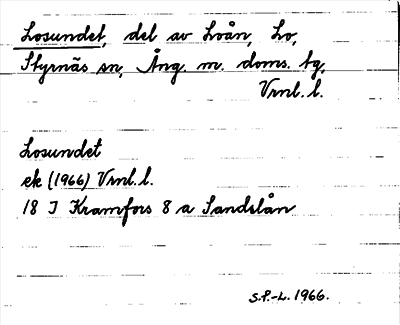 Losundet, del av Loån, Lo,
Styrnäs sn, Ång. m. doms. tg,
Vrnl. l.
Losundet
ek (1966) Vrnl. l.
18 I Kramfors 8 a Sandslån
S.P.-L. 1966.